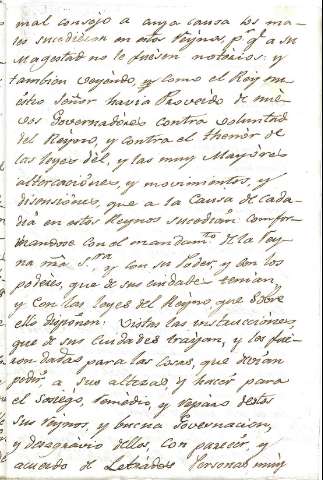 mal consejo a cuya causa los ma-
les sucedieron en estos Reynos, pª qe a su
Magestad no le fuesen notorios: y
tambien veyendo, y como el Rey nu-
estro señor havia Proveido de nue-
vos Governadores contra voluntad
del Reyno, y contra el thenor de
las leyes dèl, y las muy Mayores
altercaciones, y movimientos, y
disensiones, que a la Causa de cada
dia en estos Reynos sucedian confor-
mandose con el mandamto de la Rey-
na nrã s.ra y con su Poder, y con los
poderes, que de sus ciudades tenian,
y con las leyes del Reyno, que sobre
ello disponen: vistas las instrucciones
que de sus ciudades traian, y les fue-
ron dadas para las cosas, que devian
pedir a sus altezas, y hacer para
el sosiego, remedio, y reparo destos
sus Reynos, y buena Governacion,
y desagravio dellos, con parecer, y
acuerdo de Letrados Personas muy